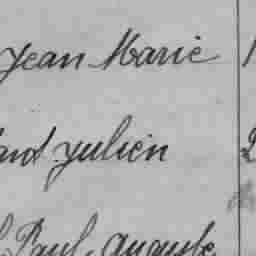 Jean Marie
Julien
Paul Auguste